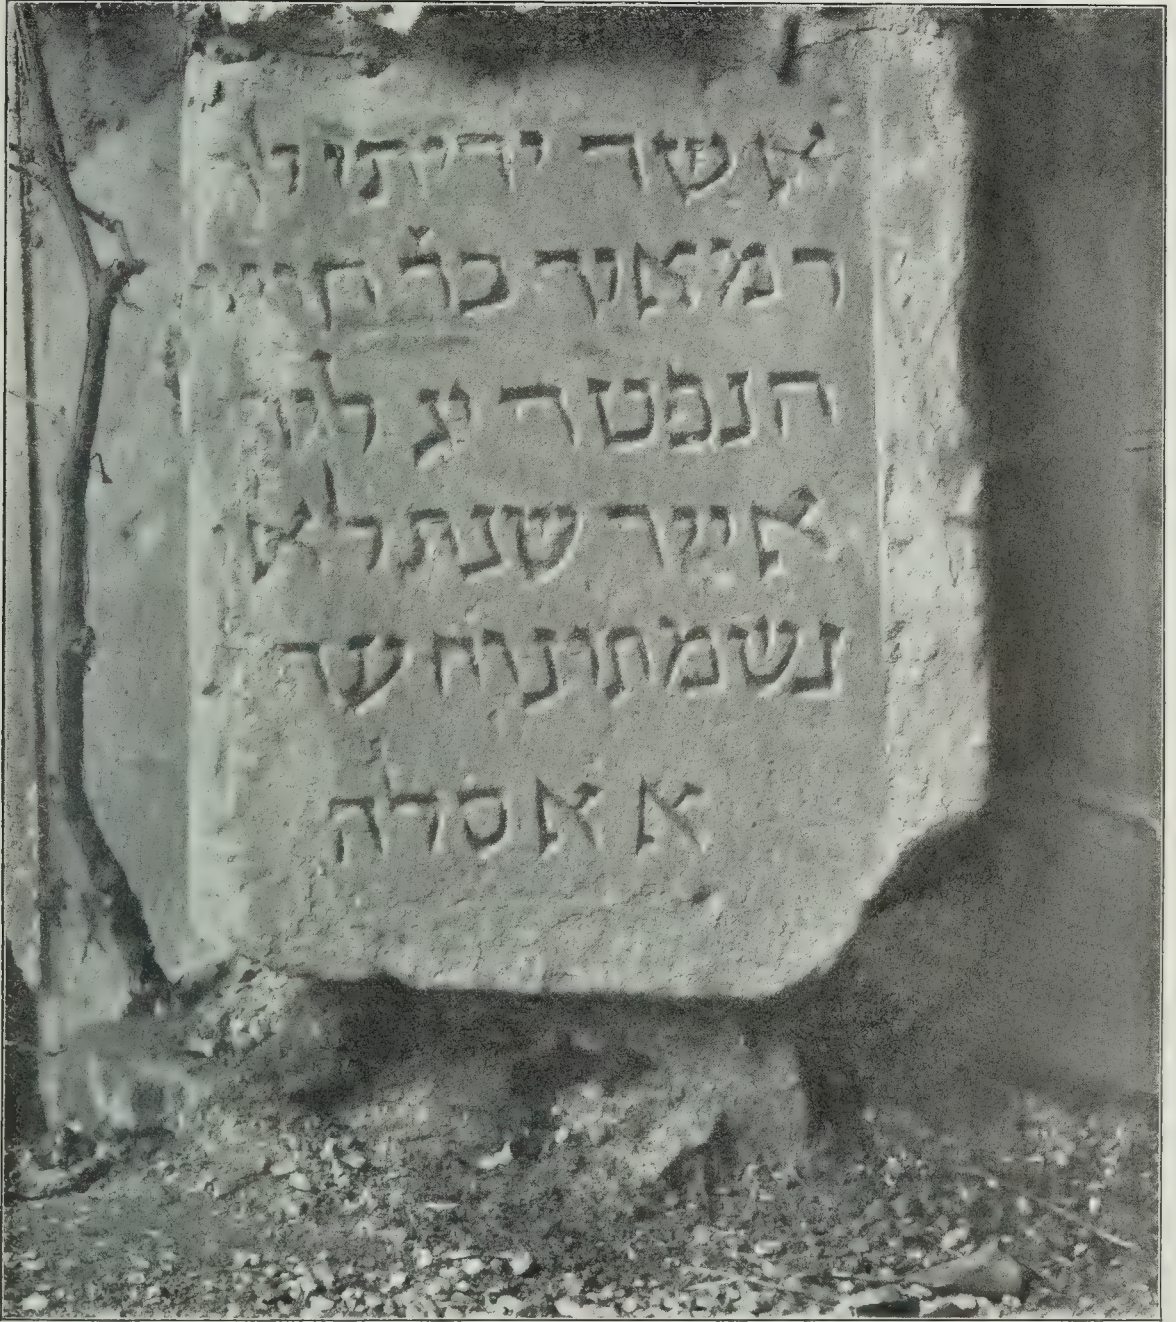 אשר יריתי
ר מאיר בר חיים
הנפטר יג ליר
אייר שנת לא
נשמתו נוח עד
א א סלה